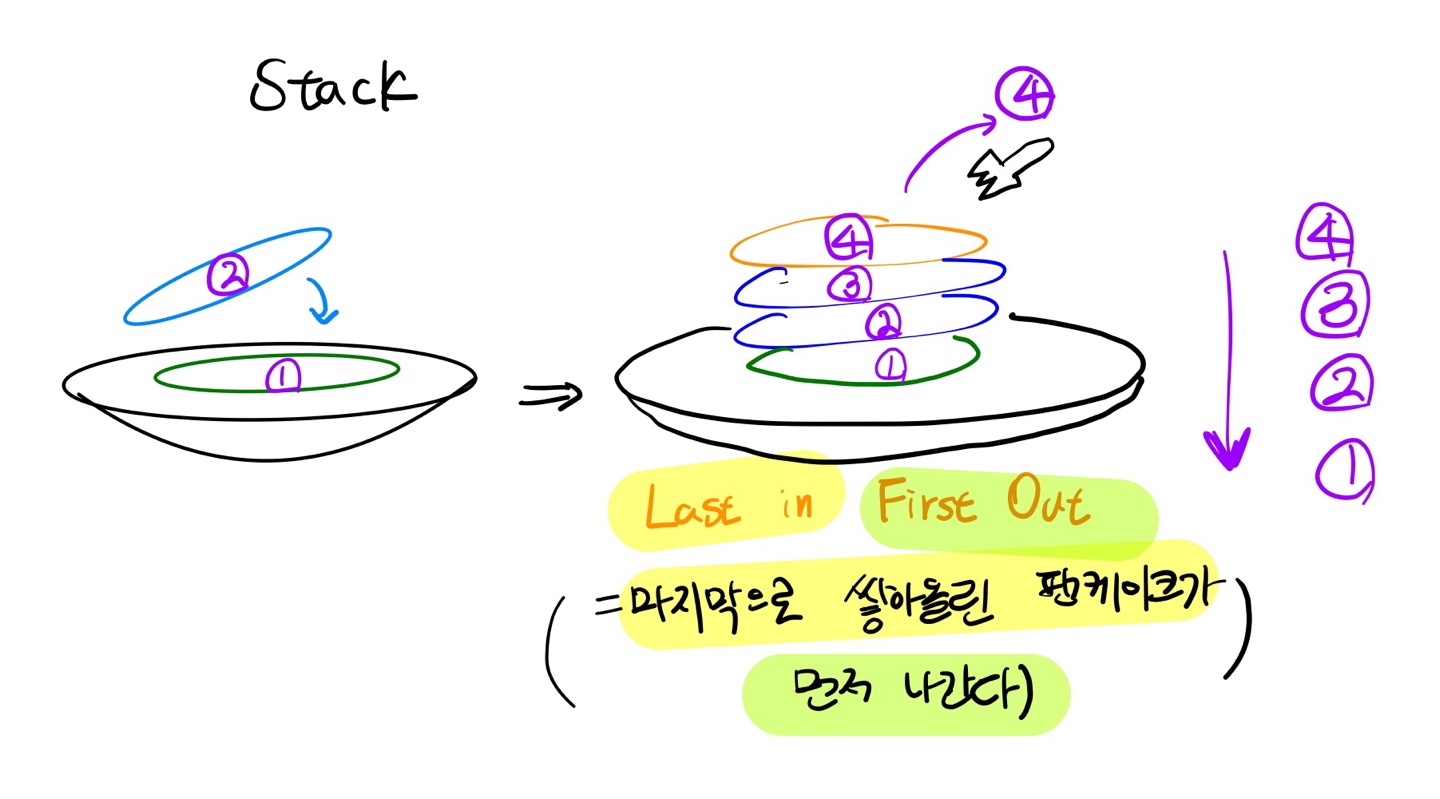 Stack
②
①
④
④
③
②
①
④
③
②
①
Last in First Out
(=마지막으로 쌓아올린 팬케이크가
먼저 나간다)